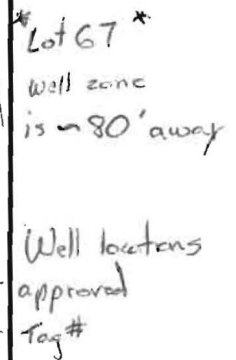 * Lot 67 *
well zone
is ~80' away
Well locations
approved
Tag#